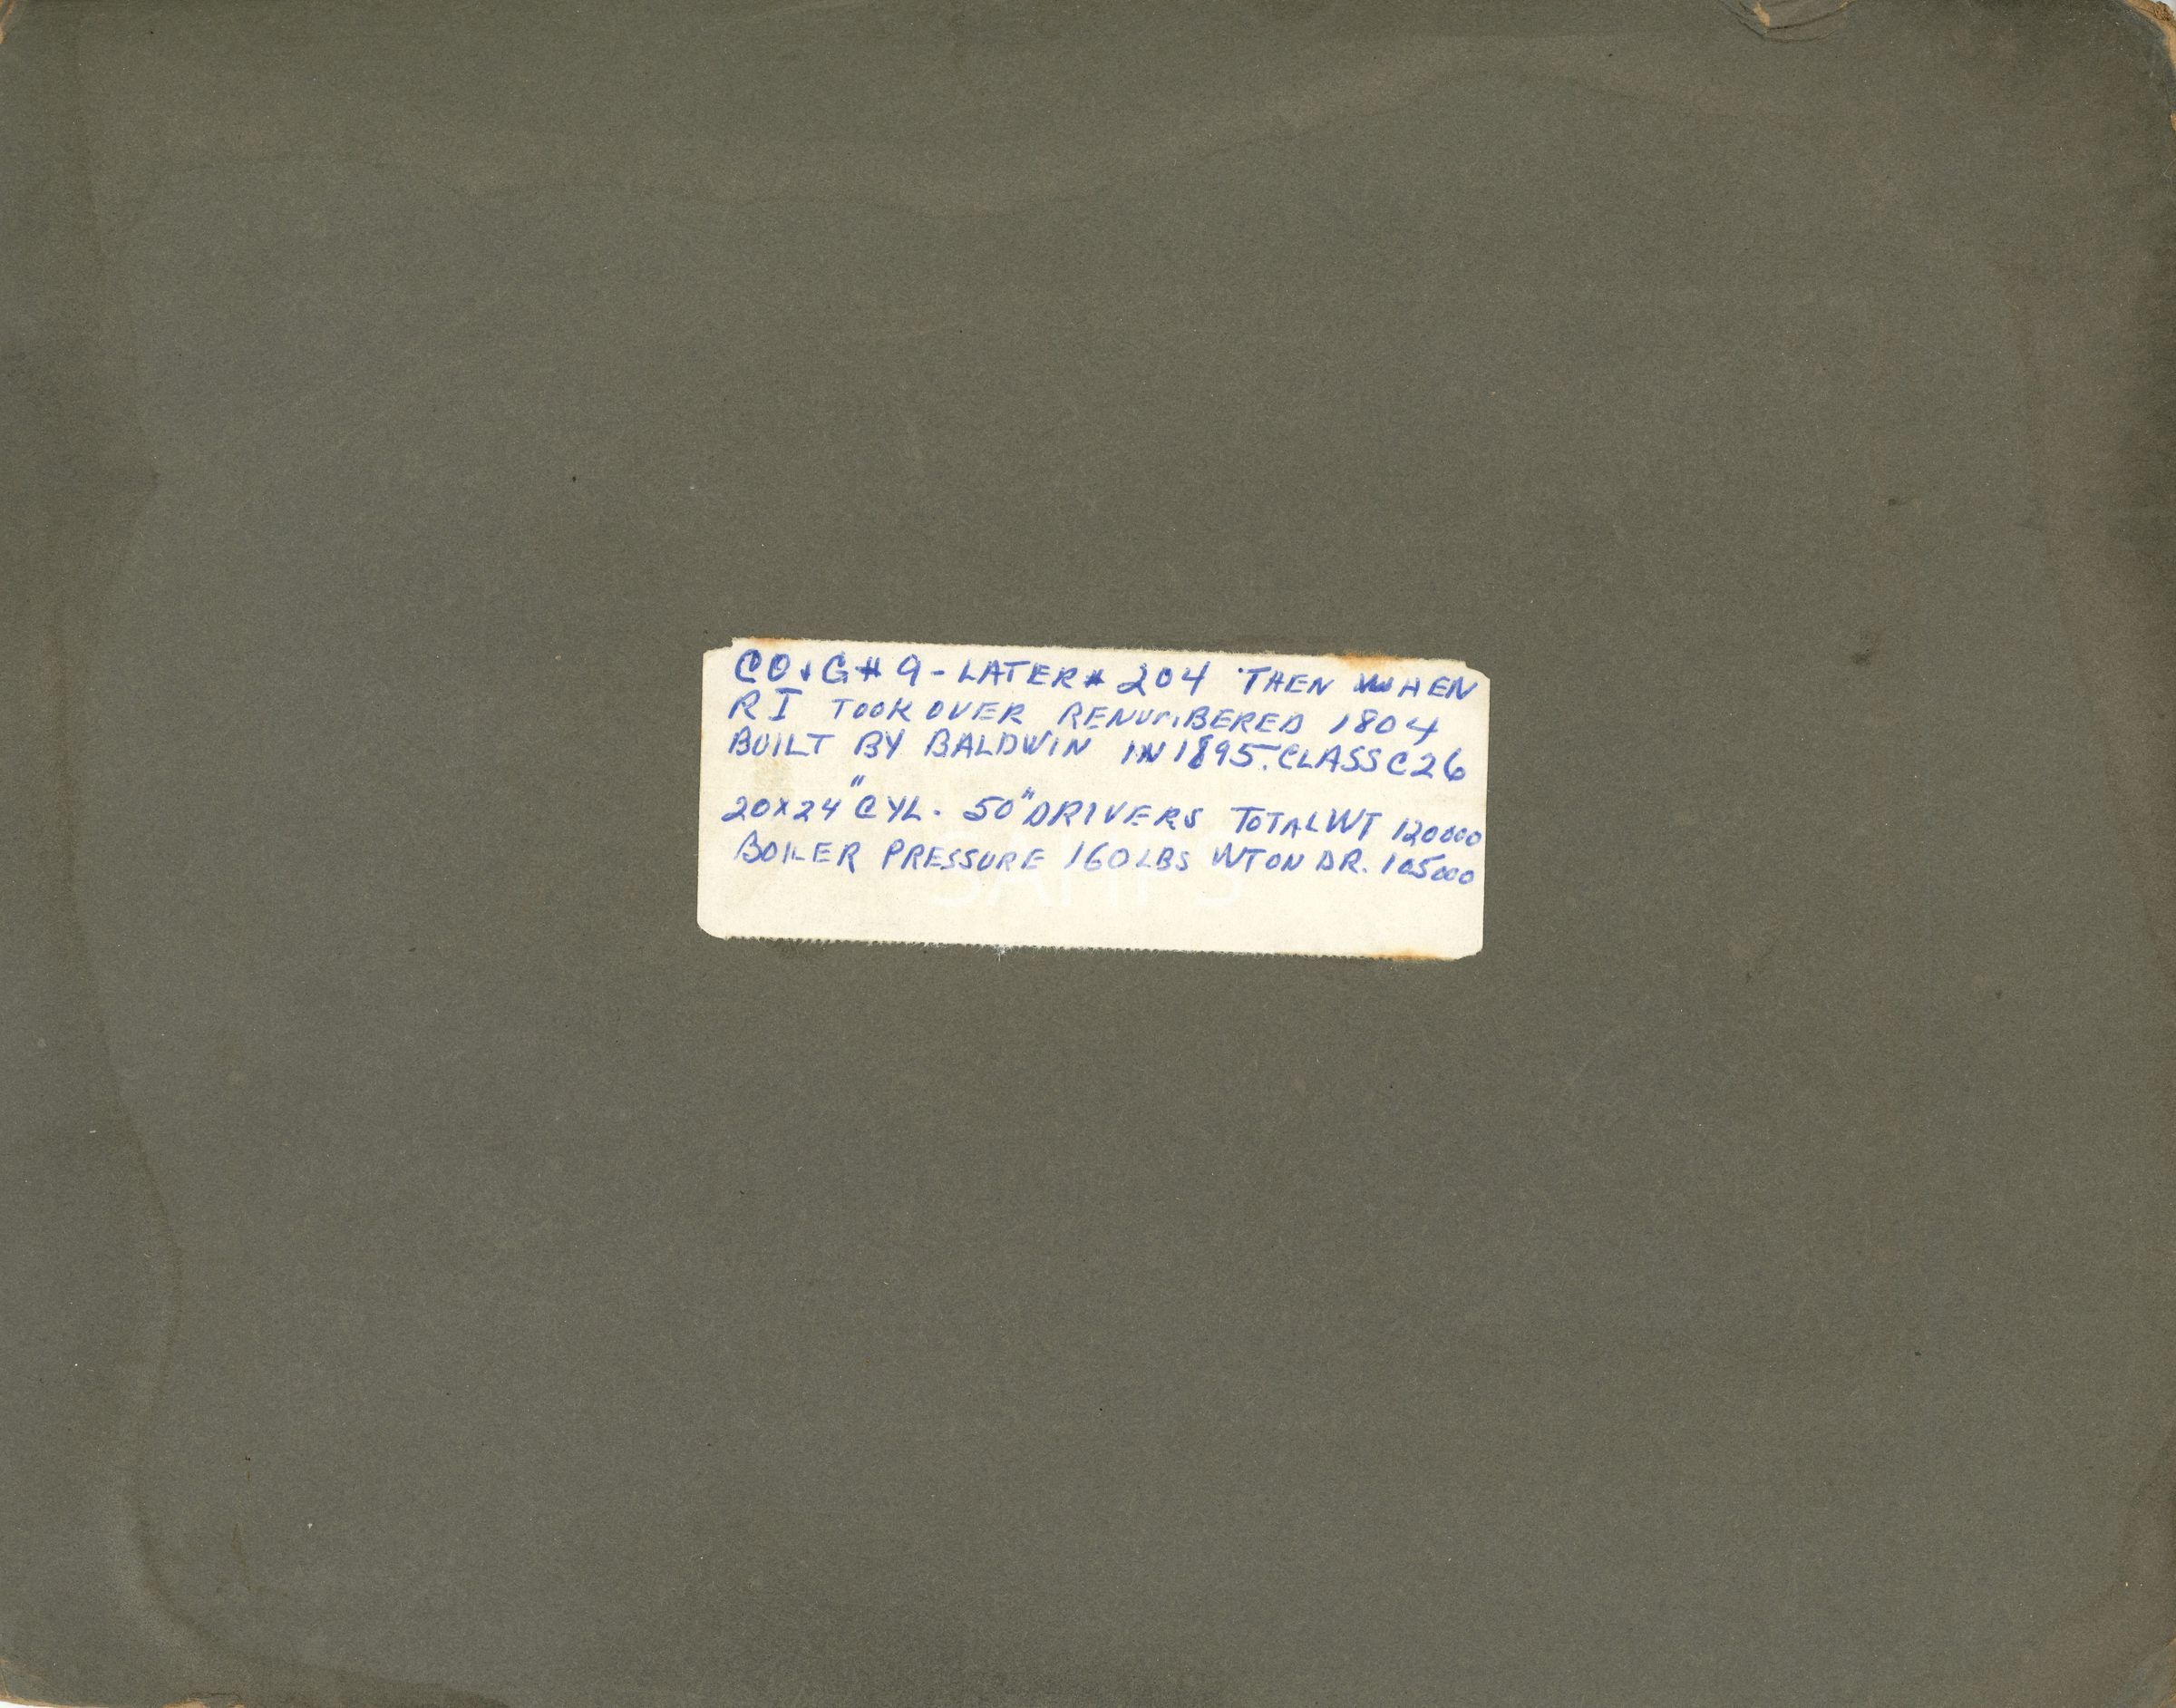 CO & G # 9 - LATER # 204 THEN WHEN
R I TOOK OVER RENUMBERED 1804
BUILT BY BALDWIN IN 1895. CLASS C26
20 X 24" CYL. 50" DRIVERS TOTAL WT 120000
BOILER PRESSURE 160 LBS WT ON DR. 105000